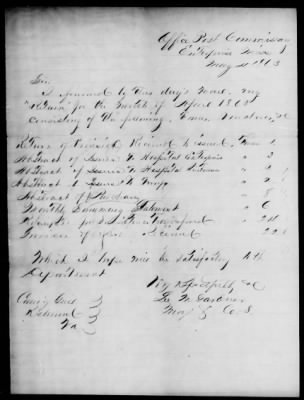 Office Post Commissary
Enterprise Miss
May 4 1863
Sir
I forward by this day's mail my
"Return" for the month of April 1863
consisting of the following Forms Vouchers, &c
Return of Provisions Received & Issued, Form 1
Abstract of Issues to Hospital Enterprise " 2
Abstract of Issues to Hospital " 2
Abstract of Issues to Troops " 2
Abstract of Purchases
Monthly Summary Statement " 6
Which I hope will be satisfactory to the
Department
Very Respectfully
Gardner
Maj & C. S.
Richmond
Va